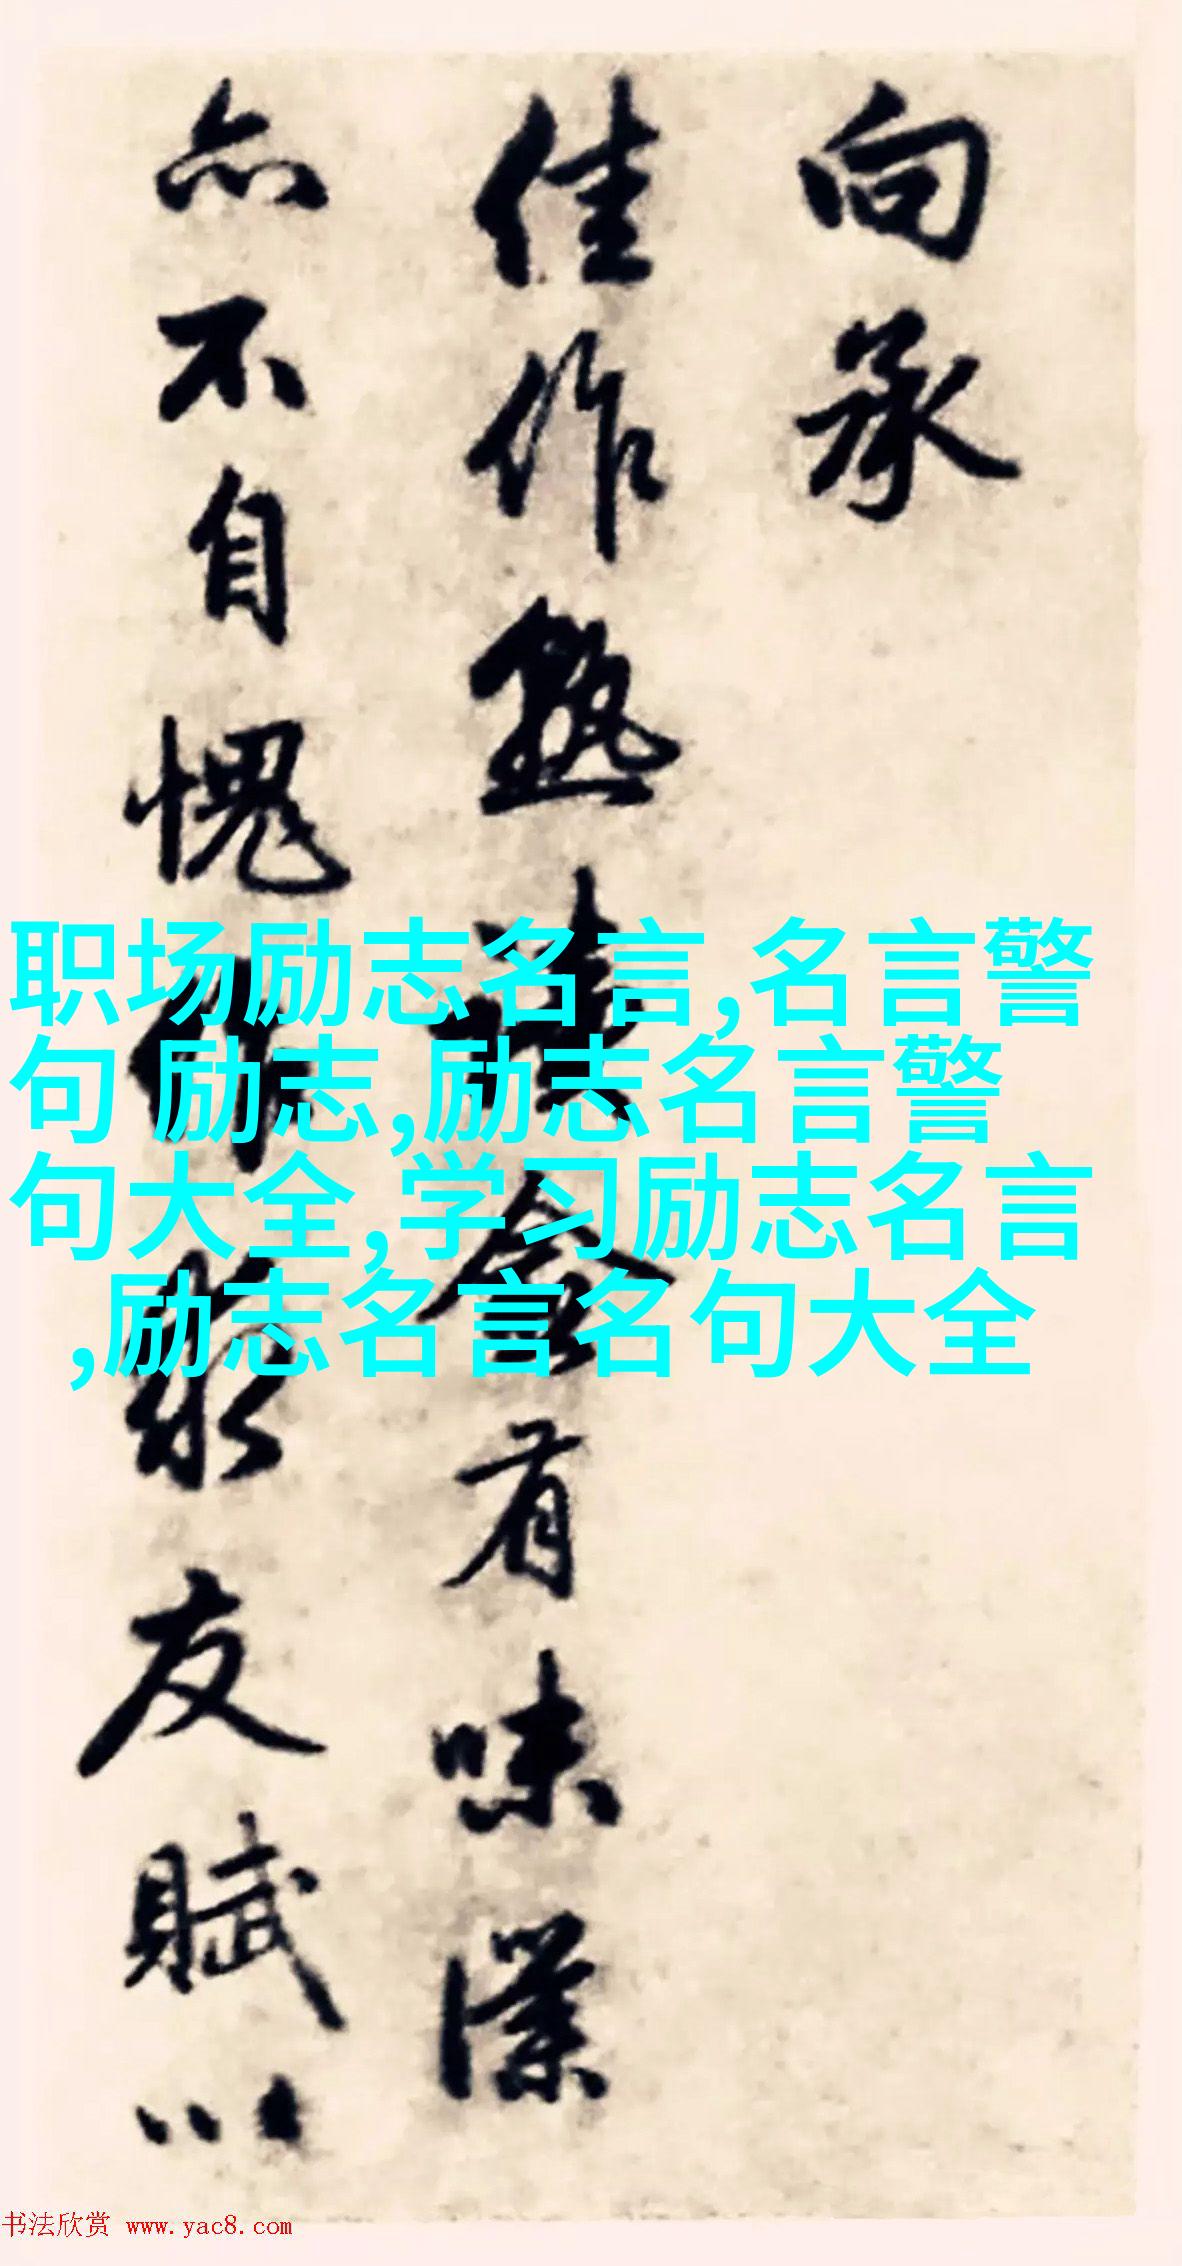 向承
佳作熟读愈有味仆
亦不自愧作数友赋以
职场励志名言,名言警
句 励志,励志名言警
句大全,学习励志名言
,励志名言名句大全
书法欣赏 www.yac8.com